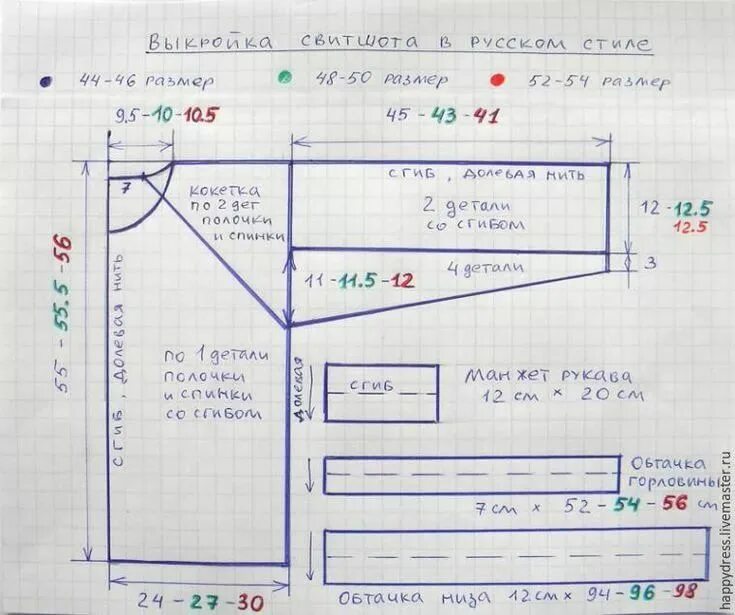 Выкройка свитшота в русском стиле
44-46 размер
48-50 размер
52-54 размер
9.5-10-10.5
45-43-41
7
кокетка
по 2 дет
полочки
и спинки
сгиб, долевая нить
2 детали
со сгибом
12-12.5
12.5
4 детали
3
11-11.5-12
55-55.5-56
сгиб, долевая нить
по 1 детали
полочки
и спинки
со сгибом
долевая
сгиб
Манжет рукава
12 см × 20 см
Обтачка
горловины
7см × 52-54-56 см
24-27-30
Обтачка низа 12см × 94-96-98
happydress.livemaster.ru